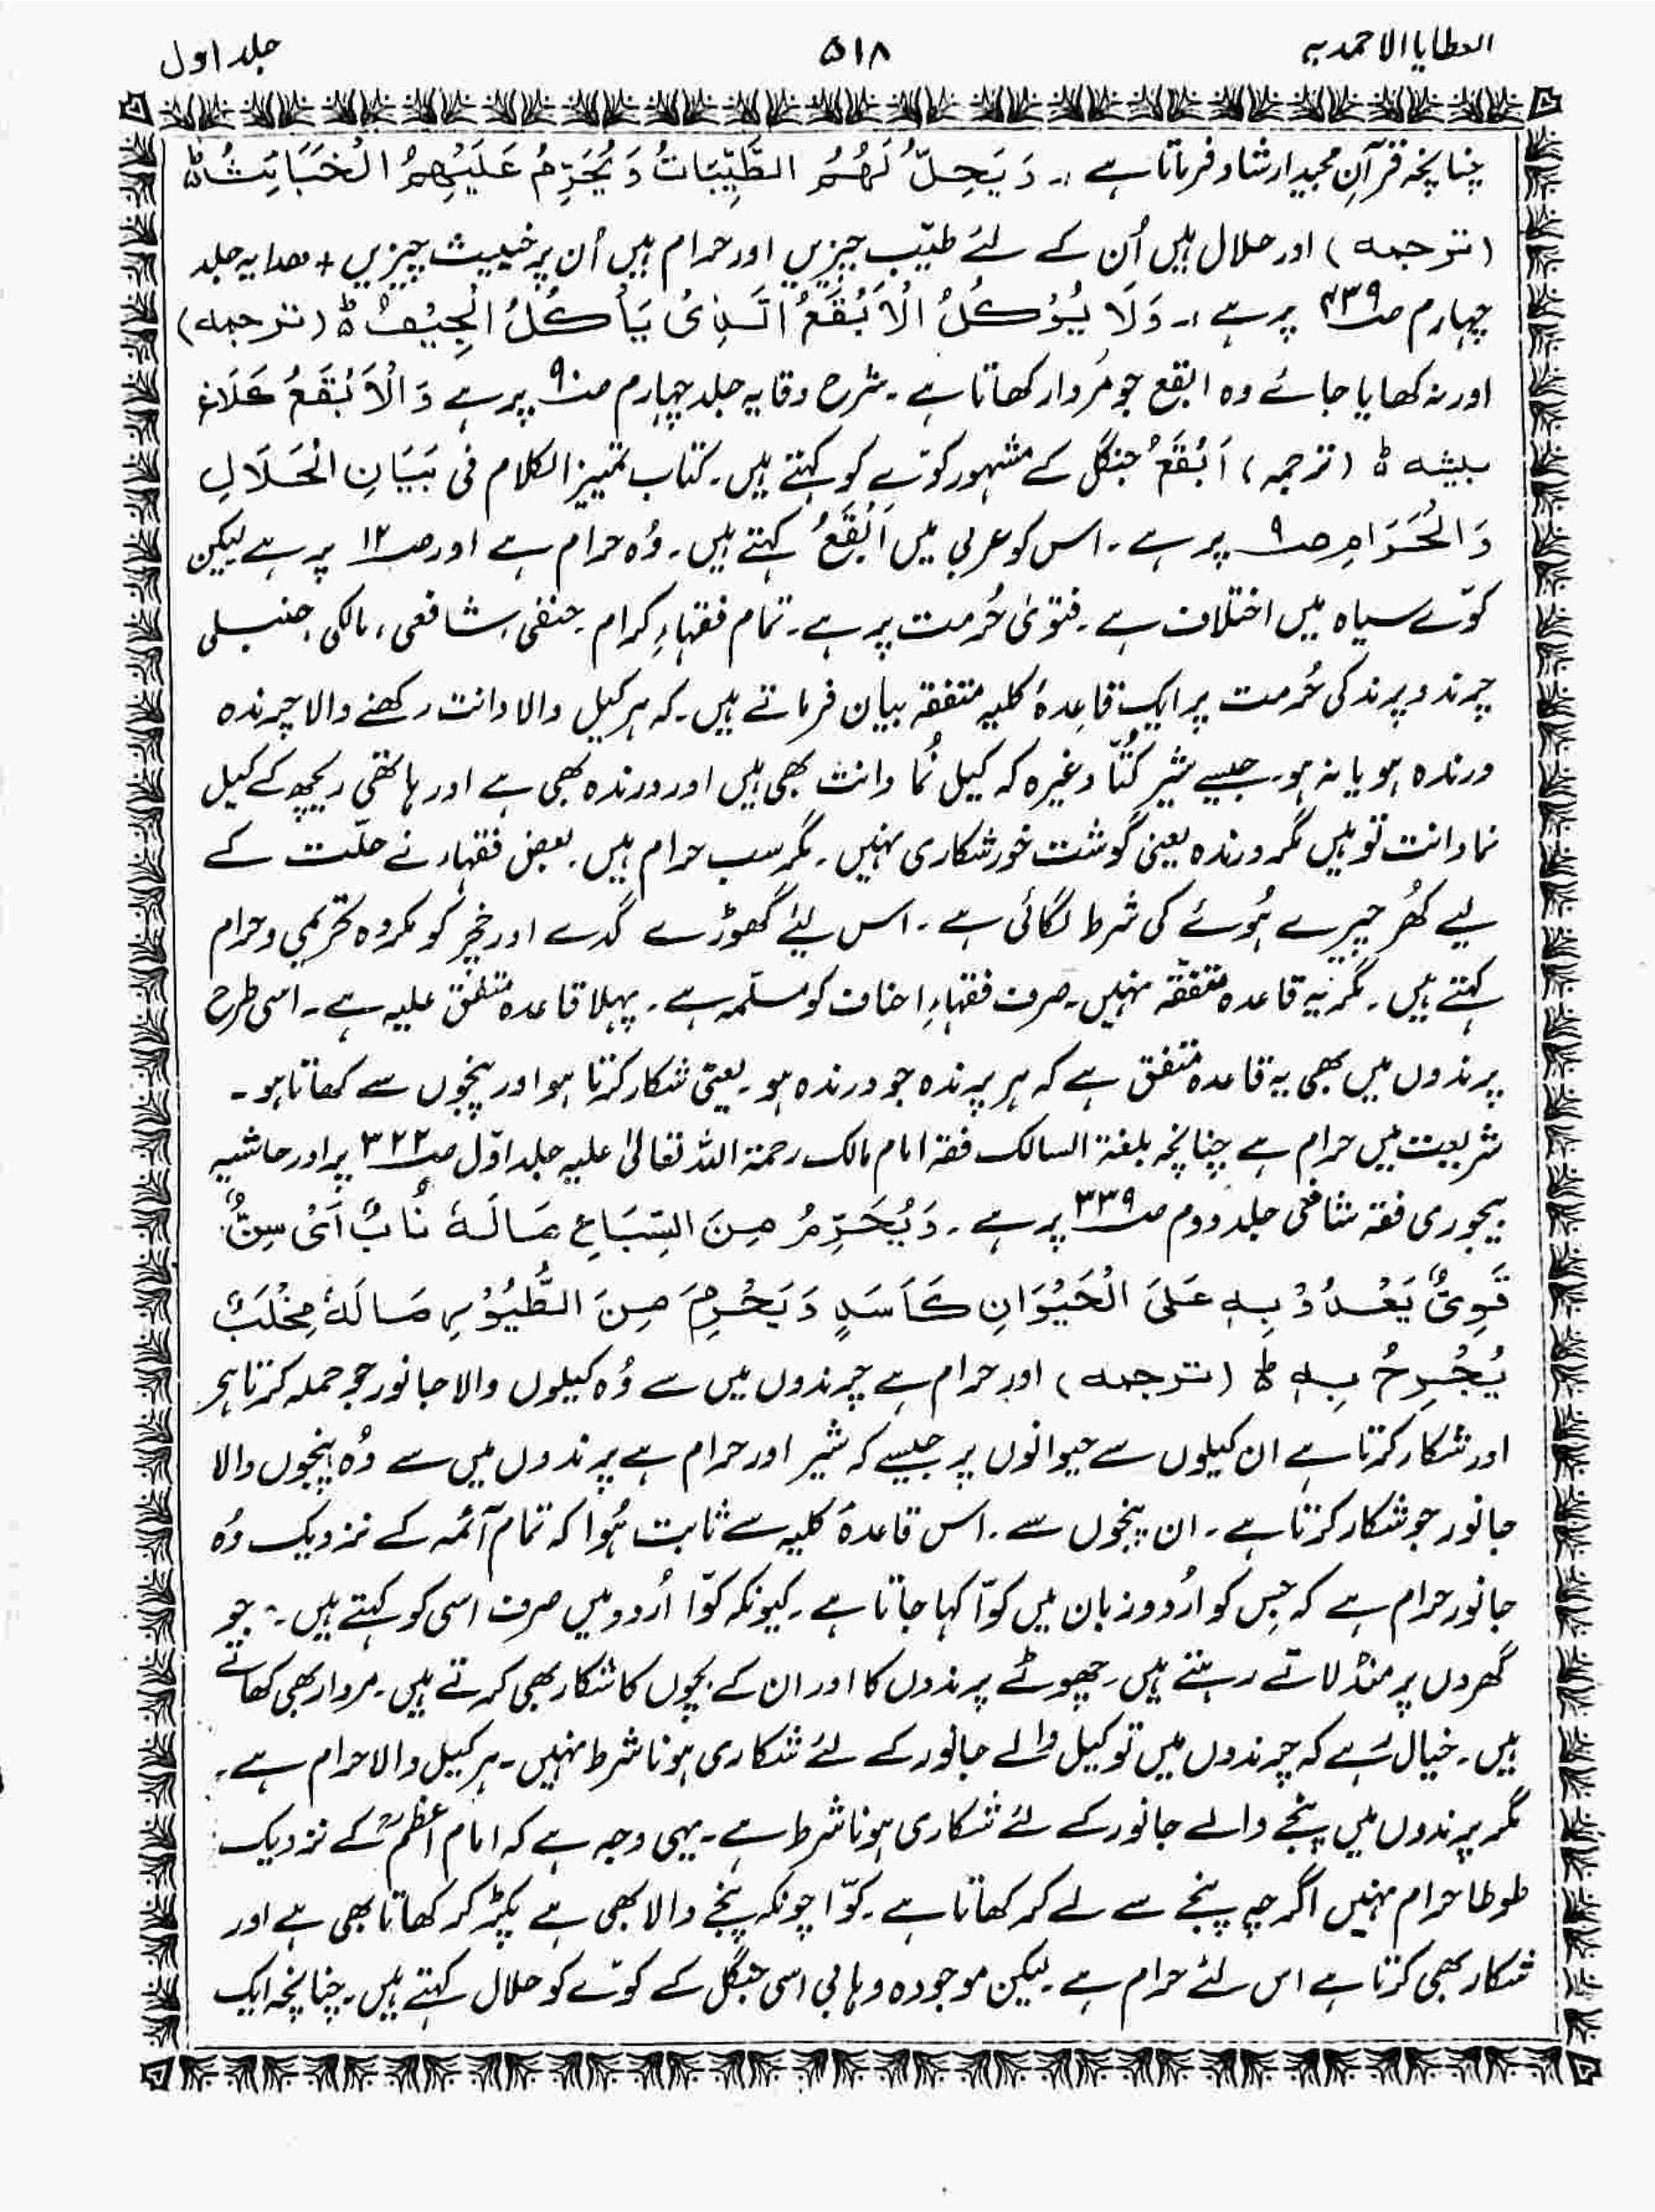 العطایا الاحمدیہ ۵۱۸ جلد اول
چنانچہ قرآنِ مجید ارشاد فرماتا ہے :۔ وَیَحِلُّ لَھُمُ الطَّیِّبَاتُ وَیُحَرِّمُ عَلَیْھِمُ الْخَبَائِثُ ۵ؕ
(ترجمہ) اور حلال ہیں اُن کے لئے طیّب چیزیں اور حرام ہیں اُن پر خبیث چیزیں + ھدایہ جلد
چہارم صـ۴۳۹ پر ہے :۔ وَلَا یُوْکَلُ الْاَبْقَعُ الَّذِیْ یَاْکُلُ الْجِیْفَ ۵ؕ (ترجمہ)
اور نہ کھایا جائے وہ ابقع جو مُردار کھاتا ہے ۔ شرح وقایہ جلد چہارم صـ۹۰ پر ہے وَالْاَبْقَعُ کَلَاغ
بیشہ ۵ؕ (ترجمہ) اَبْقَعُ جنگل کے مشہور کوّے کو کہتے ہیں۔ کتاب تمییز الکلام فی بَیَانِ الْحَلَالِ
وَالْحَرَامِ صـ۹ پر ہے ۔ اس کو عربی میں اَبْقَعُ کہتے ہیں۔ وُہ حرام ہے اور صـ۱۲ پر ہے لیکن
کوّے سیاہ میں اختلاف ہے ۔ فتویٰ حُرمت پر ہے ۔ تمام فقہاءِ کرام ۔ حنفی، شافعی، مالکی، حنبلی
چرند و پرند کی حُرمت پر ایک قاعدۂ کلیہ متفقہ بیان فرماتے ہیں۔ کہ ہر کیل والا دانت رکھنے والا چرندہ
درندہ ہو یا نہ ہو۔ جیسے شیر کُتّا وغیرہ کہ کیل نُما دانت بھی ہیں اور درندہ بھی ہے اور ہاتھی ریچھ کے کیل
نما دانت تو ہیں مگر درندہ یعنی گوشت خور شکاری نہیں ۔ مگر سب حرام ہیں ۔ بعض فقہاء نے حلّت کے
لیے کُھر چیرے ہُوئے کی شرط لگائی ہے ۔ اس لیئے گھوڑے گدے اور خچر کو مکروہ تحریمی و حرام
کہتے ہیں ۔ مگر یہ قاعدہ متفقّہ نہیں ۔ صرف فقہاءِ احناف کو مسلّمہ ہے ۔ پہلا قاعدہ متفق علیہ ہے ۔ اسی طرح
پرندوں میں بھی یہ قاعدہ متفق ہے کہ ہر پرندہ جو درندہ ہو ۔ یعنی شکار کرتا ہو اور پنجوں سے کھاتا ہو ۔
شریعت میں حرام ہے چنانچہ بلغۃ السالک فقہ امام مالک رحمۃ اللہ تعالیٰ علیہ جلد اوّل صـ۳۲۲ پر اور حاشیہ
بیجوری فقہ شافعی جلد دوم صـ۳۳۹ پر ہے ۔ وَیُحَرِّمُ مِنَ السِّبَاعِ مَالَہٗ نُابٌ اَیْ سِنٌّ
قَوِیٌّ یَعْدُوْ بِہٖ عَلَی الْحَیْوَانِ کَاَسَدٍ وَیَحْرِمَ مِنَ الطُّیُوْرِ مَالَہٗ مِخْلَبٌ
یُجْرِحُ بِہٖ ۵ؕ (ترجمہ) اور حرام ہے چرندوں میں سے وُہ کیلوں والا جانور جو حملہ کرتا ہو
اور شکار کرتا ہے ان کیلوں سے حیوانوں پر جیسے کہ شیر اور حرام ہے پرندوں میں سے وُہ پنجوں والا
جانور جو شکار کرتا ہے ۔ ان پنجوں سے ۔ اس قاعدۂ کلیہ سے ثابت ہُوا کہ تمام آئمہ کے نزدیک وُہ
جانور حرام ہے کہ جِس کو اُردو زبان میں کوّا کہا جاتا ہے ۔ کیونکہ کوّا اُردو میں صرف اسی کو کہتے ہیں ۔ جو
گھروں پر منڈلاتے رہتے ہیں ۔ چھوٹے پرندوں کا اور ان کے بچوں کا شکار بھی کرتے ہیں ۔ مردار بھی کھاتے
ہیں ۔ خیال رہے کہ چرندوں میں تو کیل والے جانور کے لئے شکاری ہونا شرط نہیں ۔ ہر کیل والا حرام ہے ۔
مگر پرندوں میں پنجے والے جانور کے لئے شکاری ہونا شرط ہے ۔ یہی وجہ ہے کہ امام اعظمؒ کے نزدیک
طوطا حرام نہیں اگرچہ پنجے سے لے کر کھاتا ہے ۔ کوّا چونکہ پنجے والا بھی ہے پکڑ کر کھاتا بھی ہے اور
شکار بھی کرتا ہے اس لئے حرام ہے ۔ لیکن موجودہ وہابی اسی جنگل کے کوّے کو حلال کہتے ہیں ۔ چنانچہ ایک